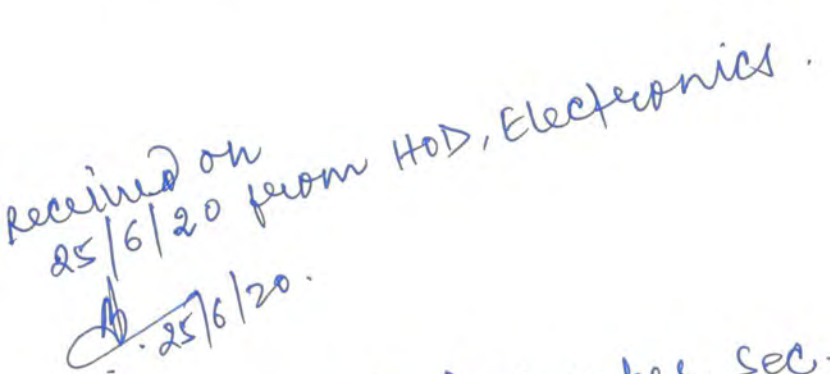 Received on
25/6/20 from HOD, Electronics.
25/6/20.
sec.